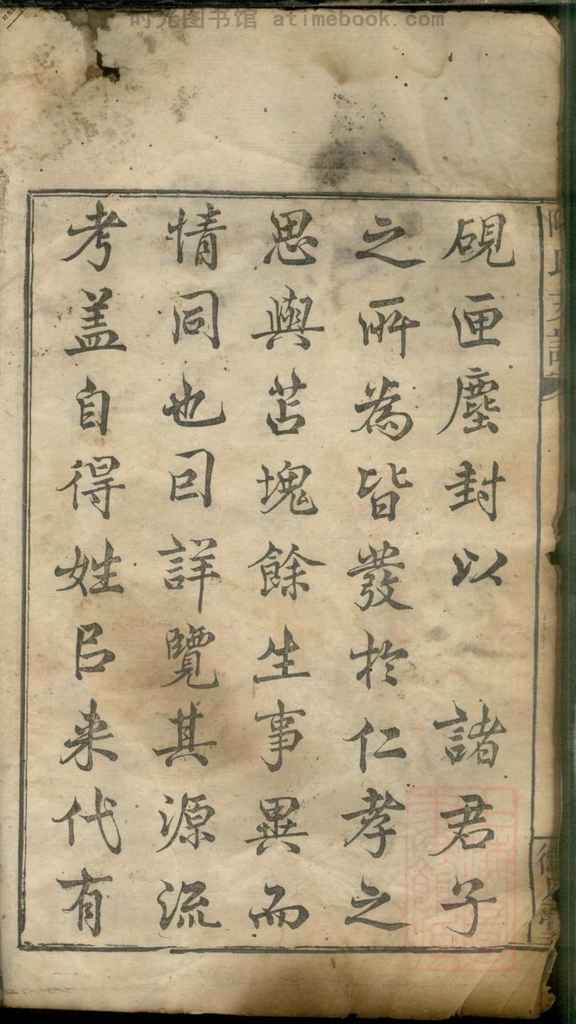 时光图书馆 atimebook.com
硯匣塵封以 諸君子
之所為皆發於仁孝之
思與苫塊餘生事異而
情同也因詳覽其源流
考盖自得姓㠯来代有